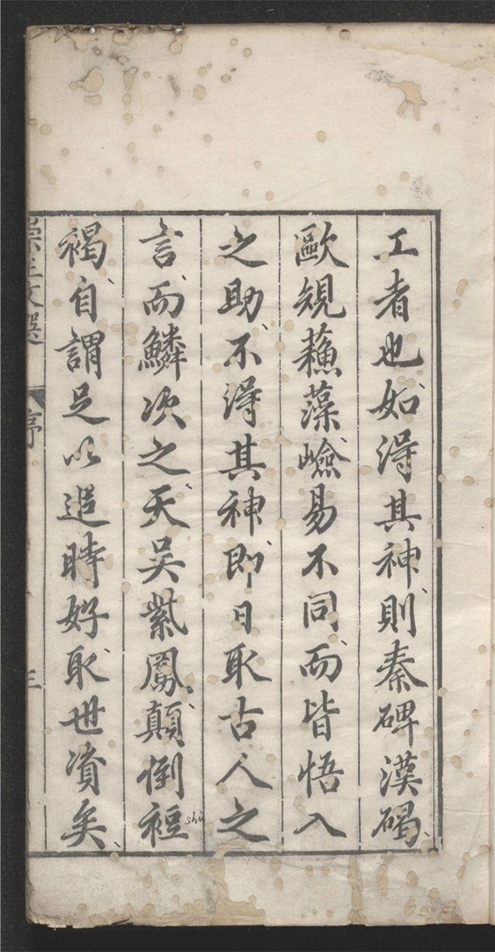 工者也如得其神則秦碑漢碣
歐規蘓藻嶮易不同而皆悟入
之助不得其神即日取古人之
言而鱗次之天吳紫鳳顛倒裋
shù
褐自謂足以追時好取世資矣
崇正文選
序
三